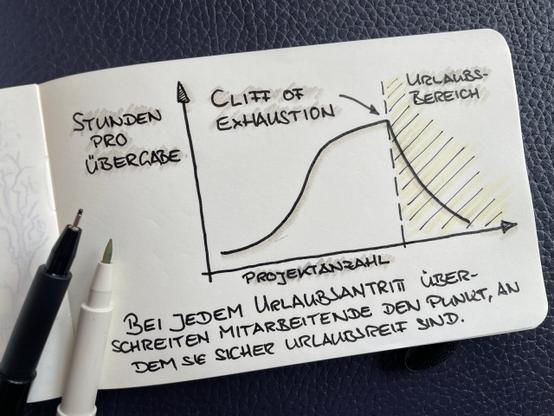 STUNDEN
PRO
ÜBERGABE
CLIFF OF
EXHAUSTION
URLAUBS-
BEREICH
PROJEKTANZAHL
BEI JEDEM URLAUBSANTRITT ÜBER-
SCHREITEN MITARBEITENDE DEN PUNKT, AN
DEM SIE SICHER URLAUBSREIF SIND.